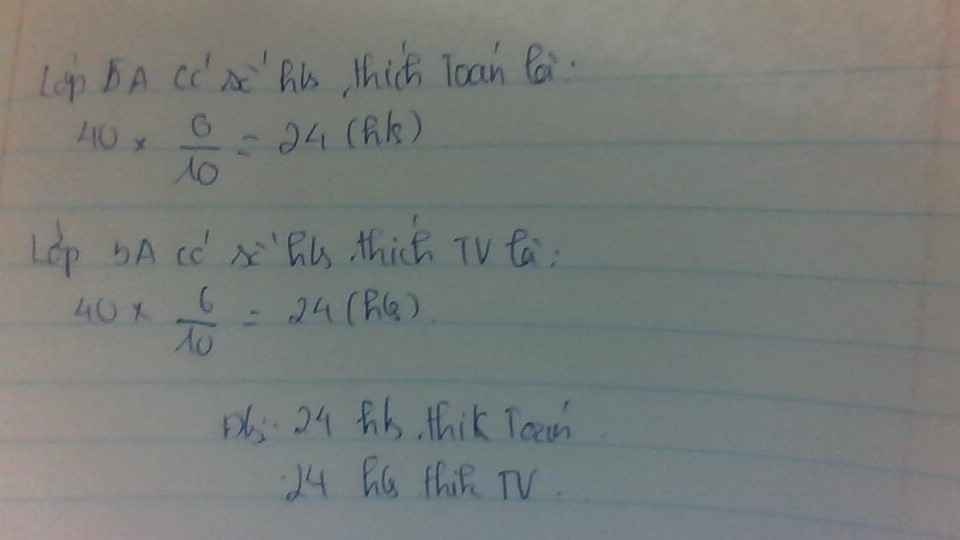 Lớp 5A có số hs thích Toán là:
40 × 6/10 = 24 (hs)
Lớp 5A có số hs thích TV là:
40 × 6/10 = 24 (hs)
Đs: 24 hs thik Toán
24 hs thih TV.